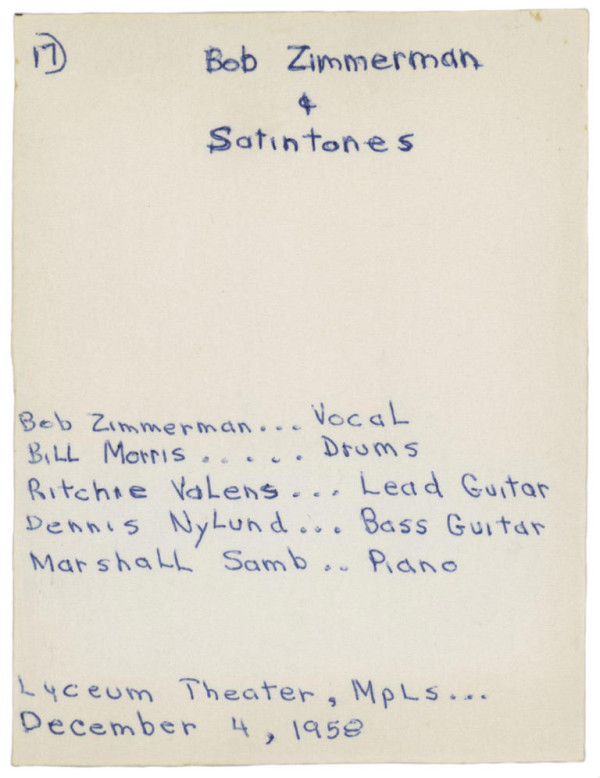 17)
Bob Zimmerman
&
Satintones
Bob Zimmerman... Vocal
Bill Morris ..... Drums
Ritchie Valens... Lead Guitar
Dennis Nylund... Bass Guitar
Marshall Samb.. Piano
Lyceum Theater, Mpls...
December 4, 1958